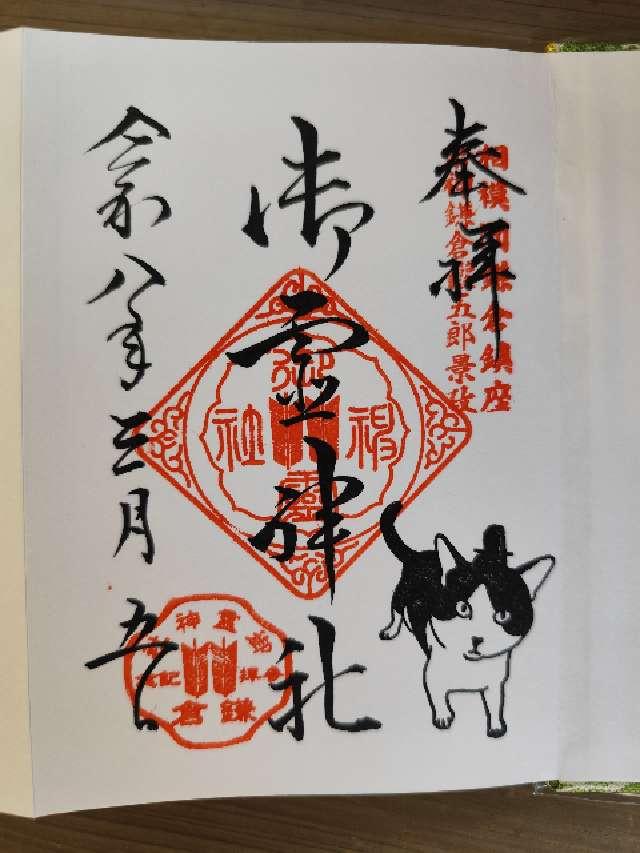 奉拝
相模国鎌倉鎮座
鎌倉権五郎景政
御霊神社
御霊神社
令和八年三月五日
鎌倉